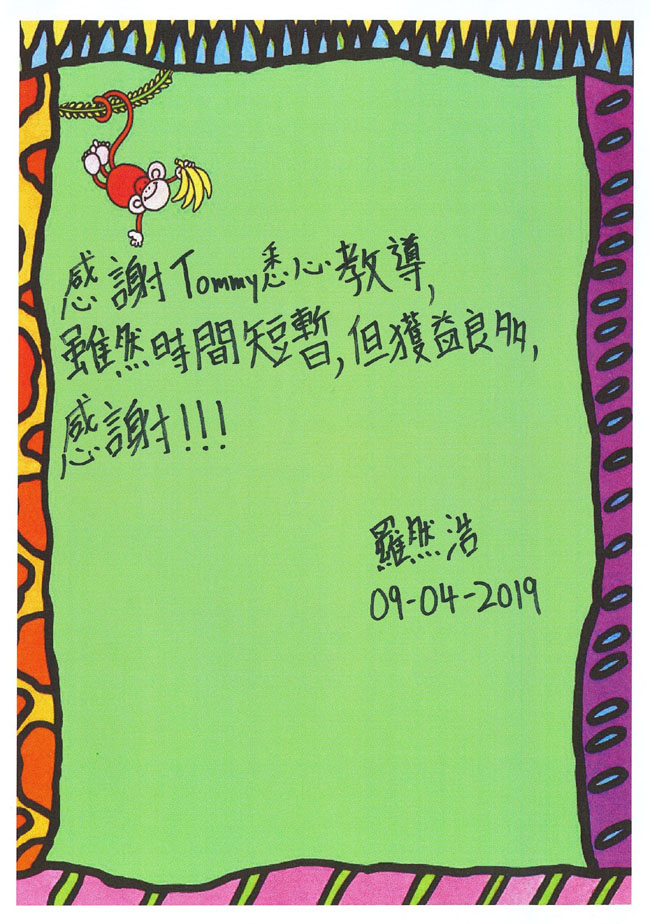 感謝Tommy悉心教導,
雖然時間短暫,但獲益良多,
感謝!!!
羅然浩
09-04-2019